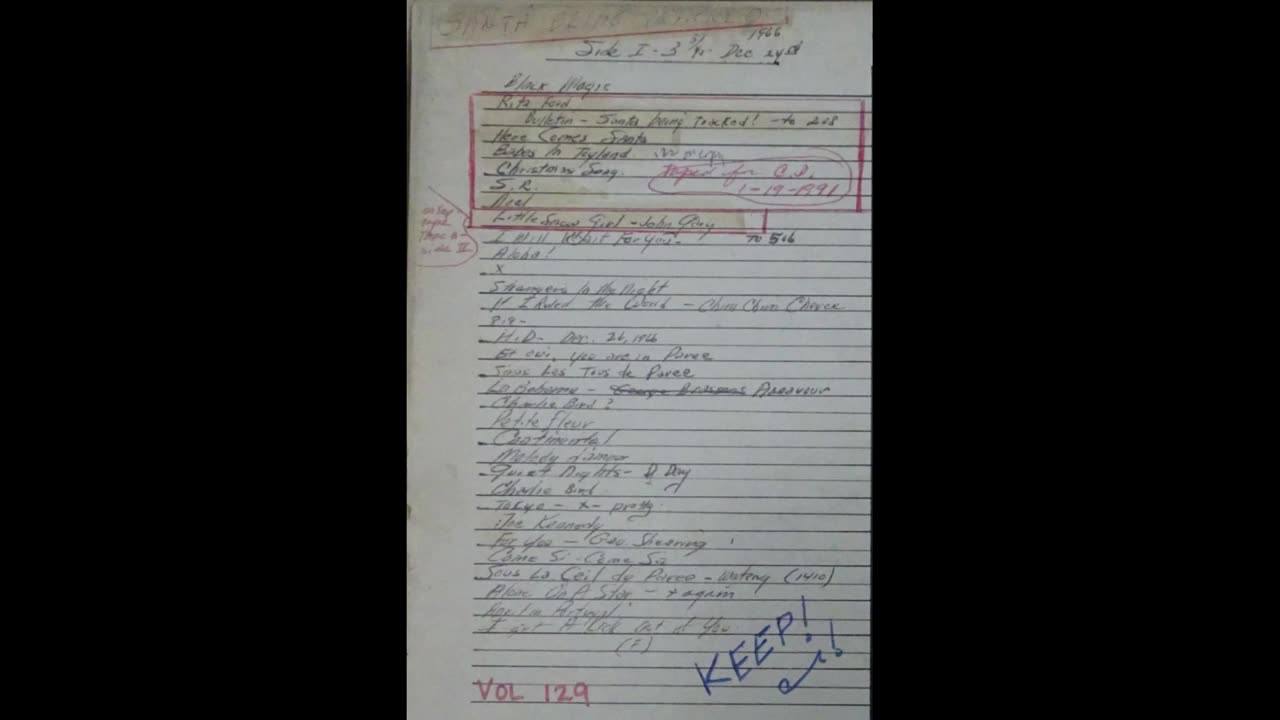 SANTA BEING TRACKED
1966
Side I - 3 3/4 Dec 24
Black Magic
Rita Ford
Bulletin - Santa being Tracked! - to 208
Here Comes Santa
Babes In Toyland
Christmas Song.
taped for C.D.
1-19-1991
S.R.
Noel
Little Snow Girl - John Gary
I Will Wait For You - To 506
Aloha!
x
Strangers In the Night
If I Ruled the World - Chim Chim Cheree
H.D - Dec. 26, 1966
Et oui, you are in Paree
Sous Les Toits de Paree
La Boheme - George Brassens Aznavour
Charlie Bird?
Petite fleur
Continental
Melody d'amour
Quiet Nights - D Day
Charlie Bird
Tokyo - x - pretty
The Kennedy
For You - Geo. Shearing
Come Si - Come Sa
Sous La Ceil de Paree - Watery (1410)
Alone On A Star - + again
April in Portugal
I get A Kick Out of You
(F)
KEEP!
VOL 129